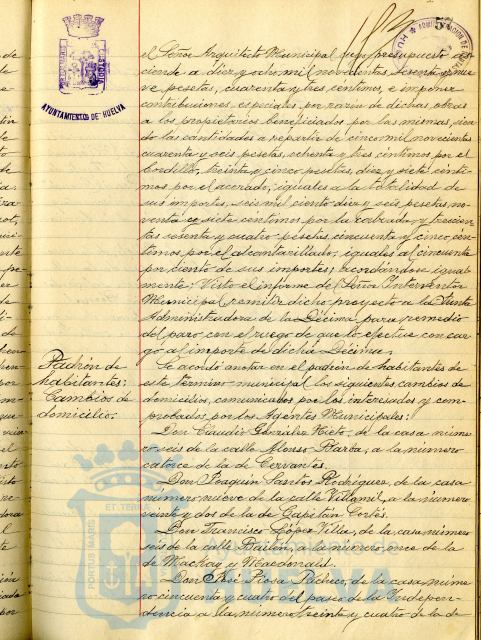 57
AYUNTAMIENTO DE HUELVA
el Señor Arquitecto Municipal cuyo presupuesto as-
ciende a diez y ocho mil novecientas sesenta y nue-
ve pesetas, cuarenta y tres centimos, e imponer
contribuciones especiales por razón de dichas obras
a los propietarios beneficiados por las mismas, sien-
do las cantidades a repartir de cinco mil novecientas
cuarenta y seis pesetas, ochenta y tres céntimos por el
bordillo, treinta y cinco pesetas, diez y siete centi-
mos por el acerado, iguales a la totalidad de
sus importes, seis mil ciento diez y seis pesetas, no-
venta y siete centimos por la calzada y trescien-
tas sesenta y cuatro pesetas, cincuenta y cinco cén-
timos por el alcantarillado, iguales al cincuenta
por ciento de sus importes; acordándose igual-
mente: Visto el informe del Señor Interventor
Municipal remitir dicho proyecto a la Junta
Administradora de la Décima para remedio
del paro con el ruego de que lo efectue con car-
go al importe de dicha Décima.
Padrón de
habitantes:
Cambios de
domicilio.
Se acordó anotar en el padrón de habitantes de
este término municipal los siguientes cambios de
domicilios, comunicados por los interesados y com-
probados por los Agentes Municipales:
Don Claudio González Nieto, de la casa núme-
ro seis de la calle Alonso Barba, a la número
catorce de la de Cervantes
Don Joaquín Santos Rodríguez, de la casa
número nueve de la calle Villamil, a la número
veinte y dos de la de Capitán Cortés.
Don Francisco López Villa, de la casa número
seis de la calle Bailén, a la número once de la
de Mackay y Macdonald.
Don José Rosa Pacheco, de la casa núme-
ro cincuenta y cuatro del paseo de la Indepen-
dencia a la número treinta y cuatro de la de
PORTUS MARIS ET TERRAE